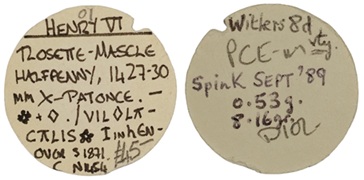 01
HENRY VI
ROSETTE-MASCLE
HALFPENNY, 1427-30
MM X-PATONCE. -
+ ◇. / VILOLA-
CALIS ✿ InħEN-
OVER S 1871.
C N1454 £45-
Withers 8d
PCE-m vty.
Spink SEPT '89
0.53g.
8.16gr.